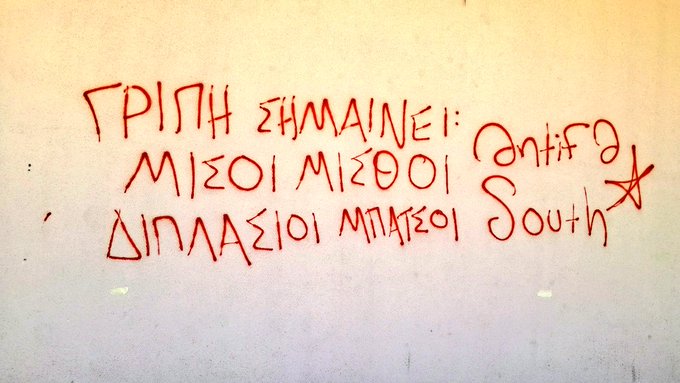 ΓΡΙΠΗ ΣΗΜΑΙΝΕΙ:
ΜΙΣΟΙ ΜΙΣΘΟΙ
ΔΙΠΛΑΣΙΟΙ ΜΠΑΤΣΟΙ
antifa
South